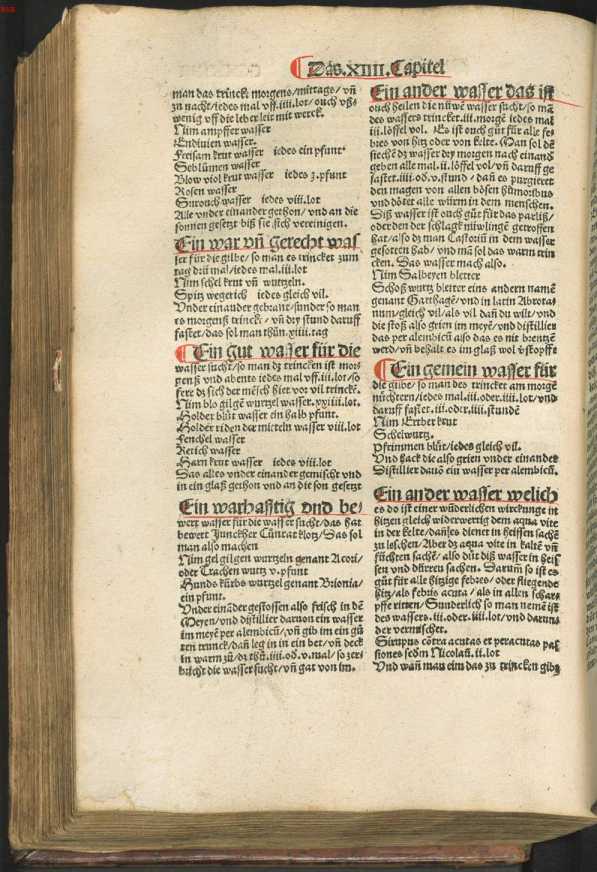 Das.XIIII.Capitel
man das trinck morgens/mittags/ vñ
zů nacht/iedes mal vff.iiii.lot/ouch vßs
wenig vff die leber leit mit werck.
Nim ampffer wasser
Endiuien wasser.
Freisam krut wasser iedes ein pfunt
Seblůmen wasser
Blow viol krut wasser iedes .ʒ.pfunt
Rosen wasser
Surouch wasser iedes viii.lot
Alle vnder einander gethon/ vnd an die
sonnen gesetzt biß sie sich vereinigen.
Ein war vñ gerecht was
ser für die gilbe/ so man es trincket zům
tag drü mal/iedes mal.iii.lot
Nim schel krut vñ wurtzeln.
Spitz wegerich iedes gleich vil.
Vnder einander gebrant/sunder so man
es morgenß trinck/ vñ dry stund daruff
fastet/das sol man thůn.xiiii.tag
Ein gut wasser für die
wasser sucht/so man dz trincken ist mor
genß vnd abents iedes mal vff.iii.lot/so
fere dz sich der mēsch hiet vor vil trinckē.
Nim blo gilgē wurtzel wasser.xxiiii.lot.
Holder blůt wasser ein halb pfunt.
Holder riden der mitteln wasser viii.lot
Fenchel wasser
Retich wasser
Harn krut wasser iedes viii.lot
Das alles vnder einander gemischt vnd
in ein glaß gethon vnd an die son gesetzt
Ein warhafftig vnd be/
wert wasser für die wasser sucht/das hat
bewert Junckher Cůnrat klotz/Das sol
man also machen
Nim gel gilgen wurtzeln genant Acori/
oder Trachen wurtz v.pfunt
Hunds kürbs wurtzel genant Brionia/
ein pfunt.
Vnder eināder gestossen also frisch in dē
Meyen/vnd distillier daruon ein wasser
im meyē per alembicū/vñ gib im ein gů
ten trunck/dañ leg in in ein bet/vñ deck
in warm zů/dz thů.iiii.od.v.mal/ so zer/
bricht die wasser sucht/vñ gat von im.
Ein ander wasser das ist
ouch heilen die nüwē wasser sucht/so mā
des wassers trincket.iii.morgē iedes mal
iii.löffel vol. Es ist ouch gůt für alle fe/
bres von hitz oder von kelte. Man sol dē
siechē dz wasser dry morgen nach einand
geben alle mal.ii.löffel vol/vñ daruff ge
fastet.iiii.od.v.stund/ dañ es purgieret
den magen von allen bösen hůmoribus
vnd dötet alle würm in dem menschen.
Diß wasser ist ouch gůt für das parliß/
oder den der schlagk nüwlingē getroffen
hat/also dz man Castoriū in dem wasser
gesotten hab/ vnd mā sol das warm trin
cken. Das wasser mach also.
Nim Salbeyen bletter
Schoß wurtz bletter eins andern namē
genant Garthagē/vnd in latin Abrota/
num/gleich vil/als vil dañ du wilt/ vnd
die stoß also grien im meyē/vnd distillier
das per alembicū also das es nit brentzē
werd/vñ behalt es im glaß wol vstopffs
Ein gemein wasser für
die gilbe/so man des trincket am morgē
nüchtern/iedes mal.iii.oder.iiii.lot/vnd
daruff fastet.iii.oder.iiii.stundē
Nim Ertber krut
Schelwurtz.
Pfrimmen blůt/iedes gleich vil.
Vnd hack die also grien vnder einander
Distillier dauō ein wasser per alembicū.
Ein ander wasser welich
es do ist einer wūderlichen wirckunge in
hitzen gleich widerwertig dem aqua vite
in der kelte/dañ es dienet in heissen sachē
zů leschen. Aber dz aqua vite in kaltē vñ
füchten sachē/ also důt diß wasser in heis
sen vnd dürren sachen. Darum̄ so ist es
gůt für alle hitzige febres/oder fliegende
hitz/als febris acuta / als in allen schar/
pffe rimen/ Sunderlich so man nemē ist
des wassers.iii.oder.iiii.lot/vnd darun/
der vermischet.
Sirupus cōtra acutas et peracutas pas
siones scdm̄ Nicolaū.ii.lot
Vnd wañ man eim das zů trincken gibt